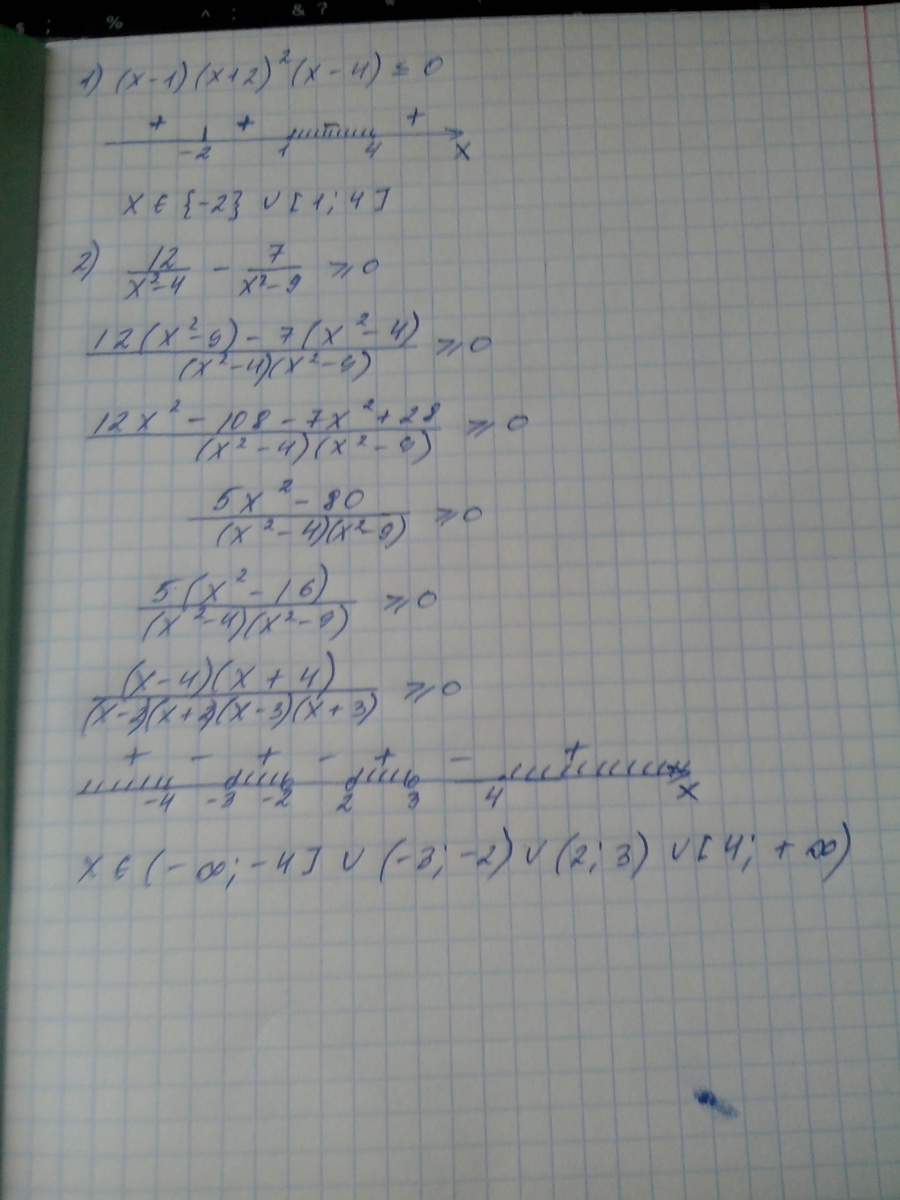 1) (x-1)(x+2)²(x-4) ≤ 0
+ + - +
-2 1 4 x
x ∈ {-2} ∪ [1; 4]
2) 12/(x²-4) - 7/(x²-9) ≥ 0
(12(x²-9) - 7(x²-4))/((x²-4)(x²-9)) ≥ 0
(12x² - 108 - 7x² + 28)/((x²-4)(x²-9)) ≥ 0
(5x² - 80)/((x²-4)(x²-9)) ≥ 0
(5(x²-16))/((x²-4)(x²-9)) ≥ 0
((x-4)(x+4))/((x-2)(x+2)(x-3)(x+3)) ≥ 0
+ - + - + - +
-4 -3 -2 2 3 4 x
x ∈ (-∞; -4] ∪ (-3; -2) ∪ (2; 3) ∪ [4; +∞)